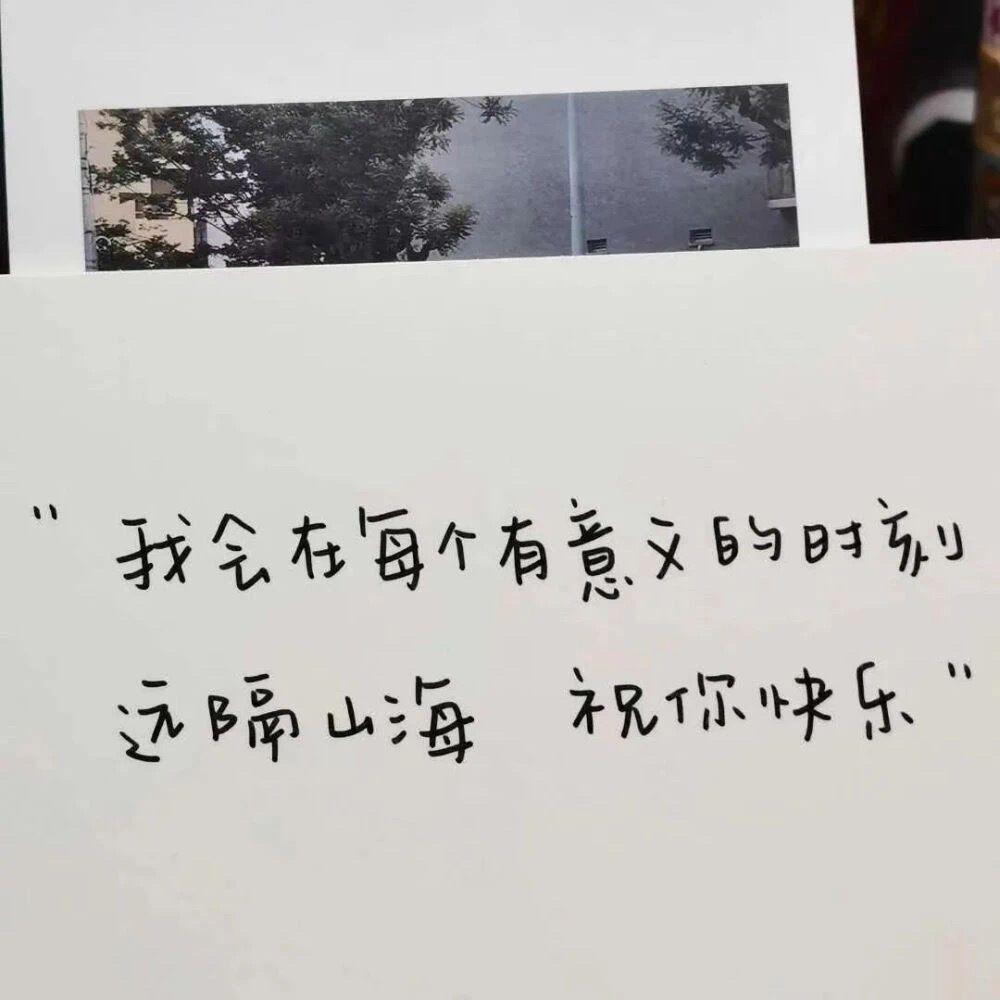 “我会在每个有意义的时刻
远隔山海 祝你快乐”